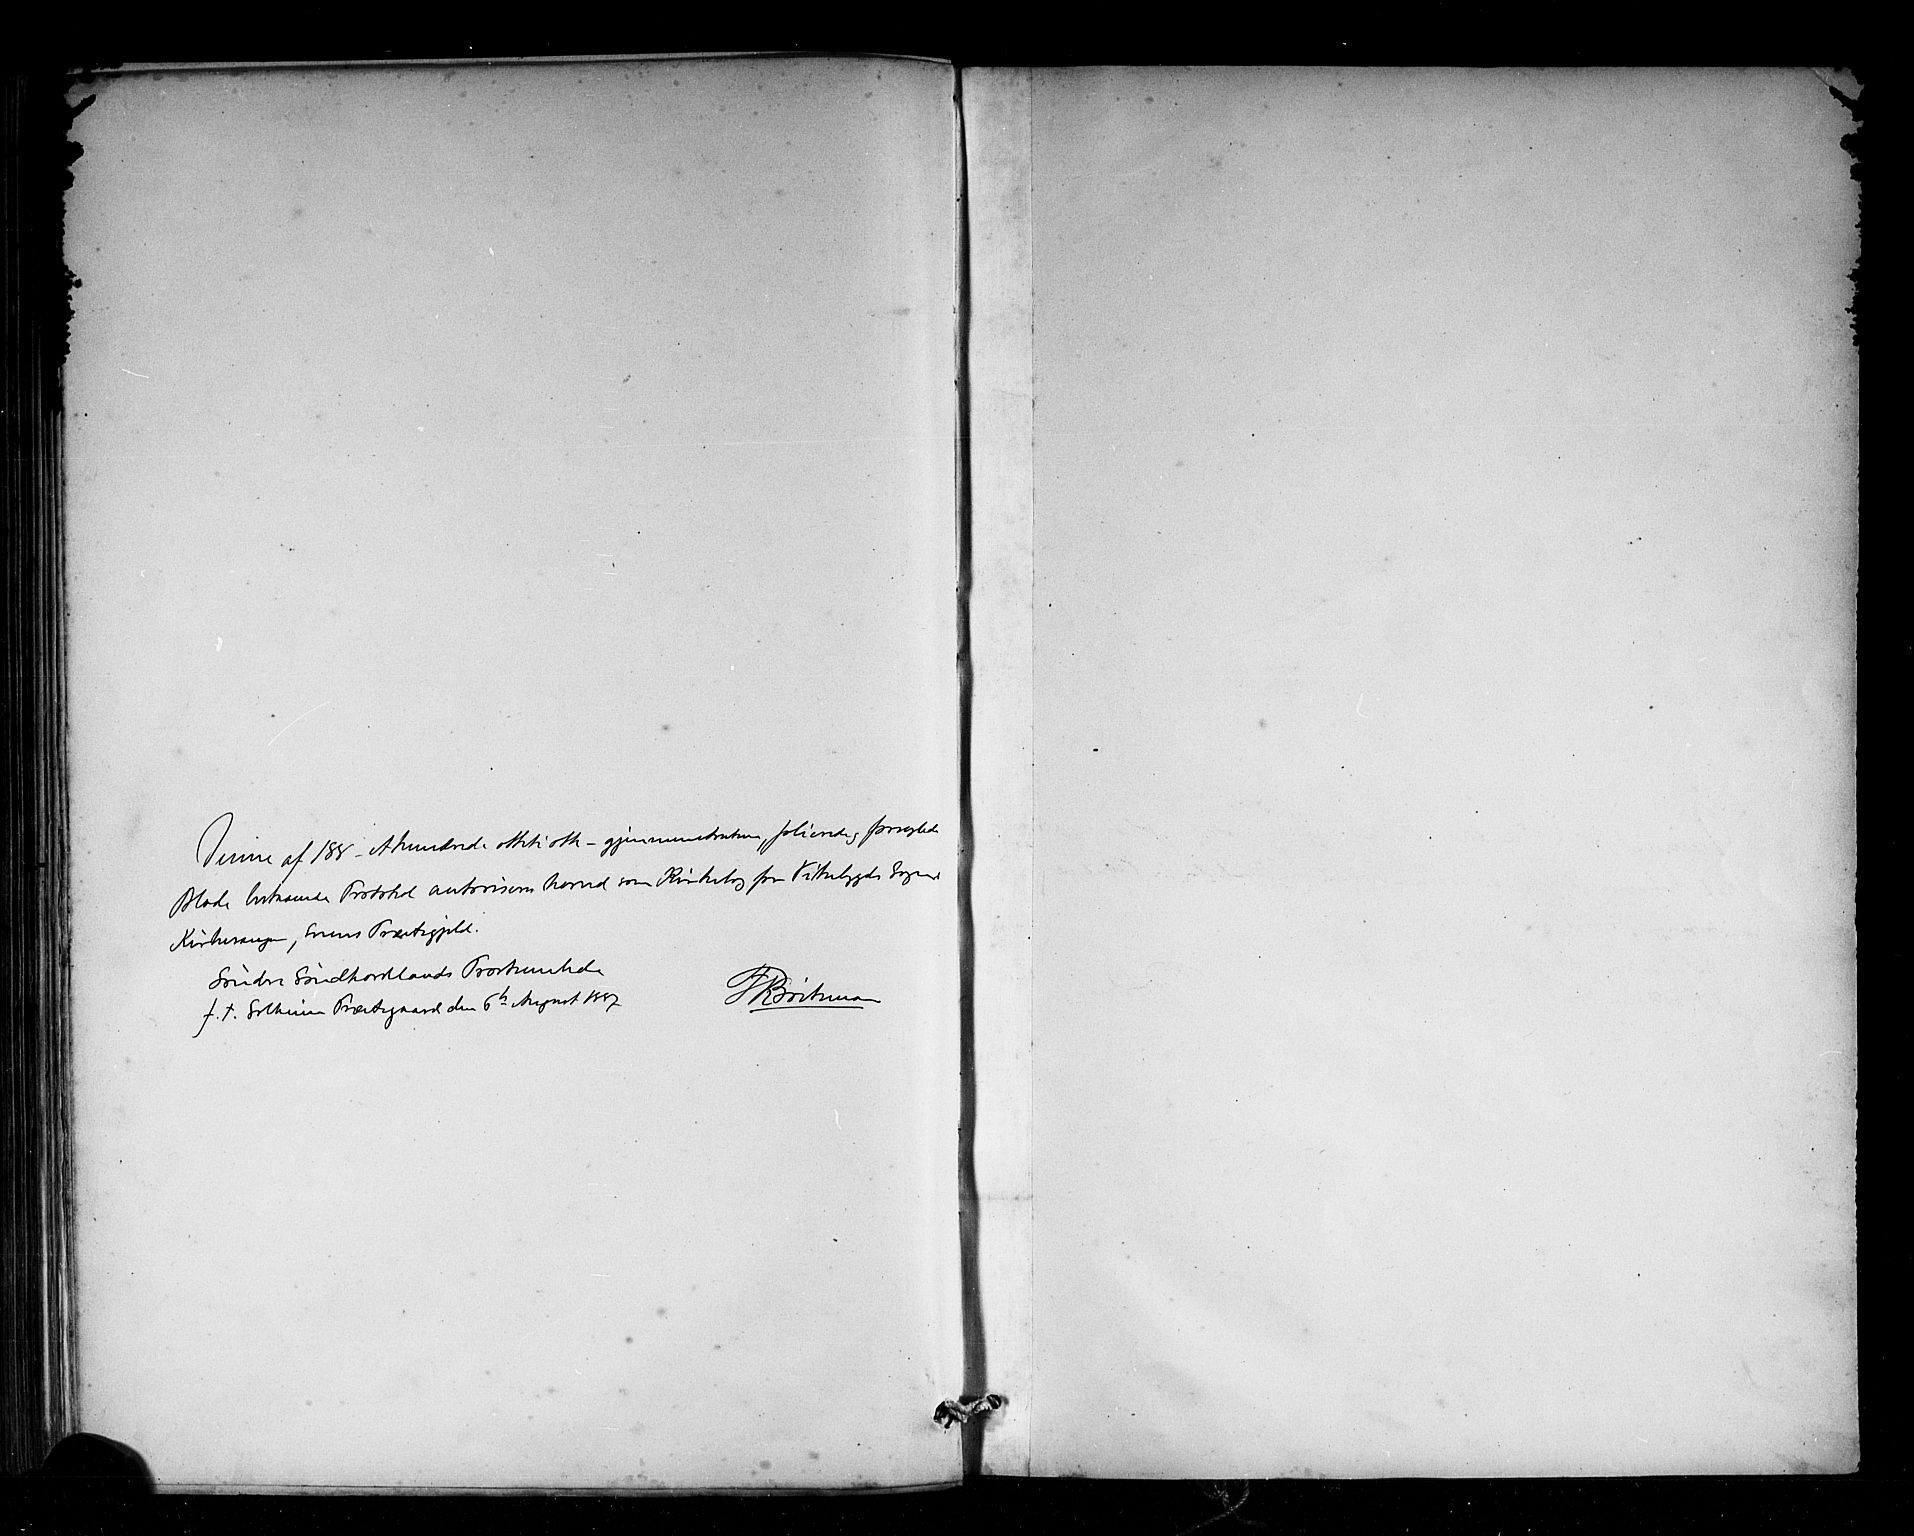 Denne af 188 - Ethundrede ottiotte - gjennemdragne, folierede, forseglede
Blade bestaaende Protokol autoriseres herved som Kirkebog for Vikebygds Sogns
Kirkesanger, Ølens Præstegjeld.
Søndre Søndhordlands Provstembede
f. t. Solheim Præstegaard den 6te August 1887